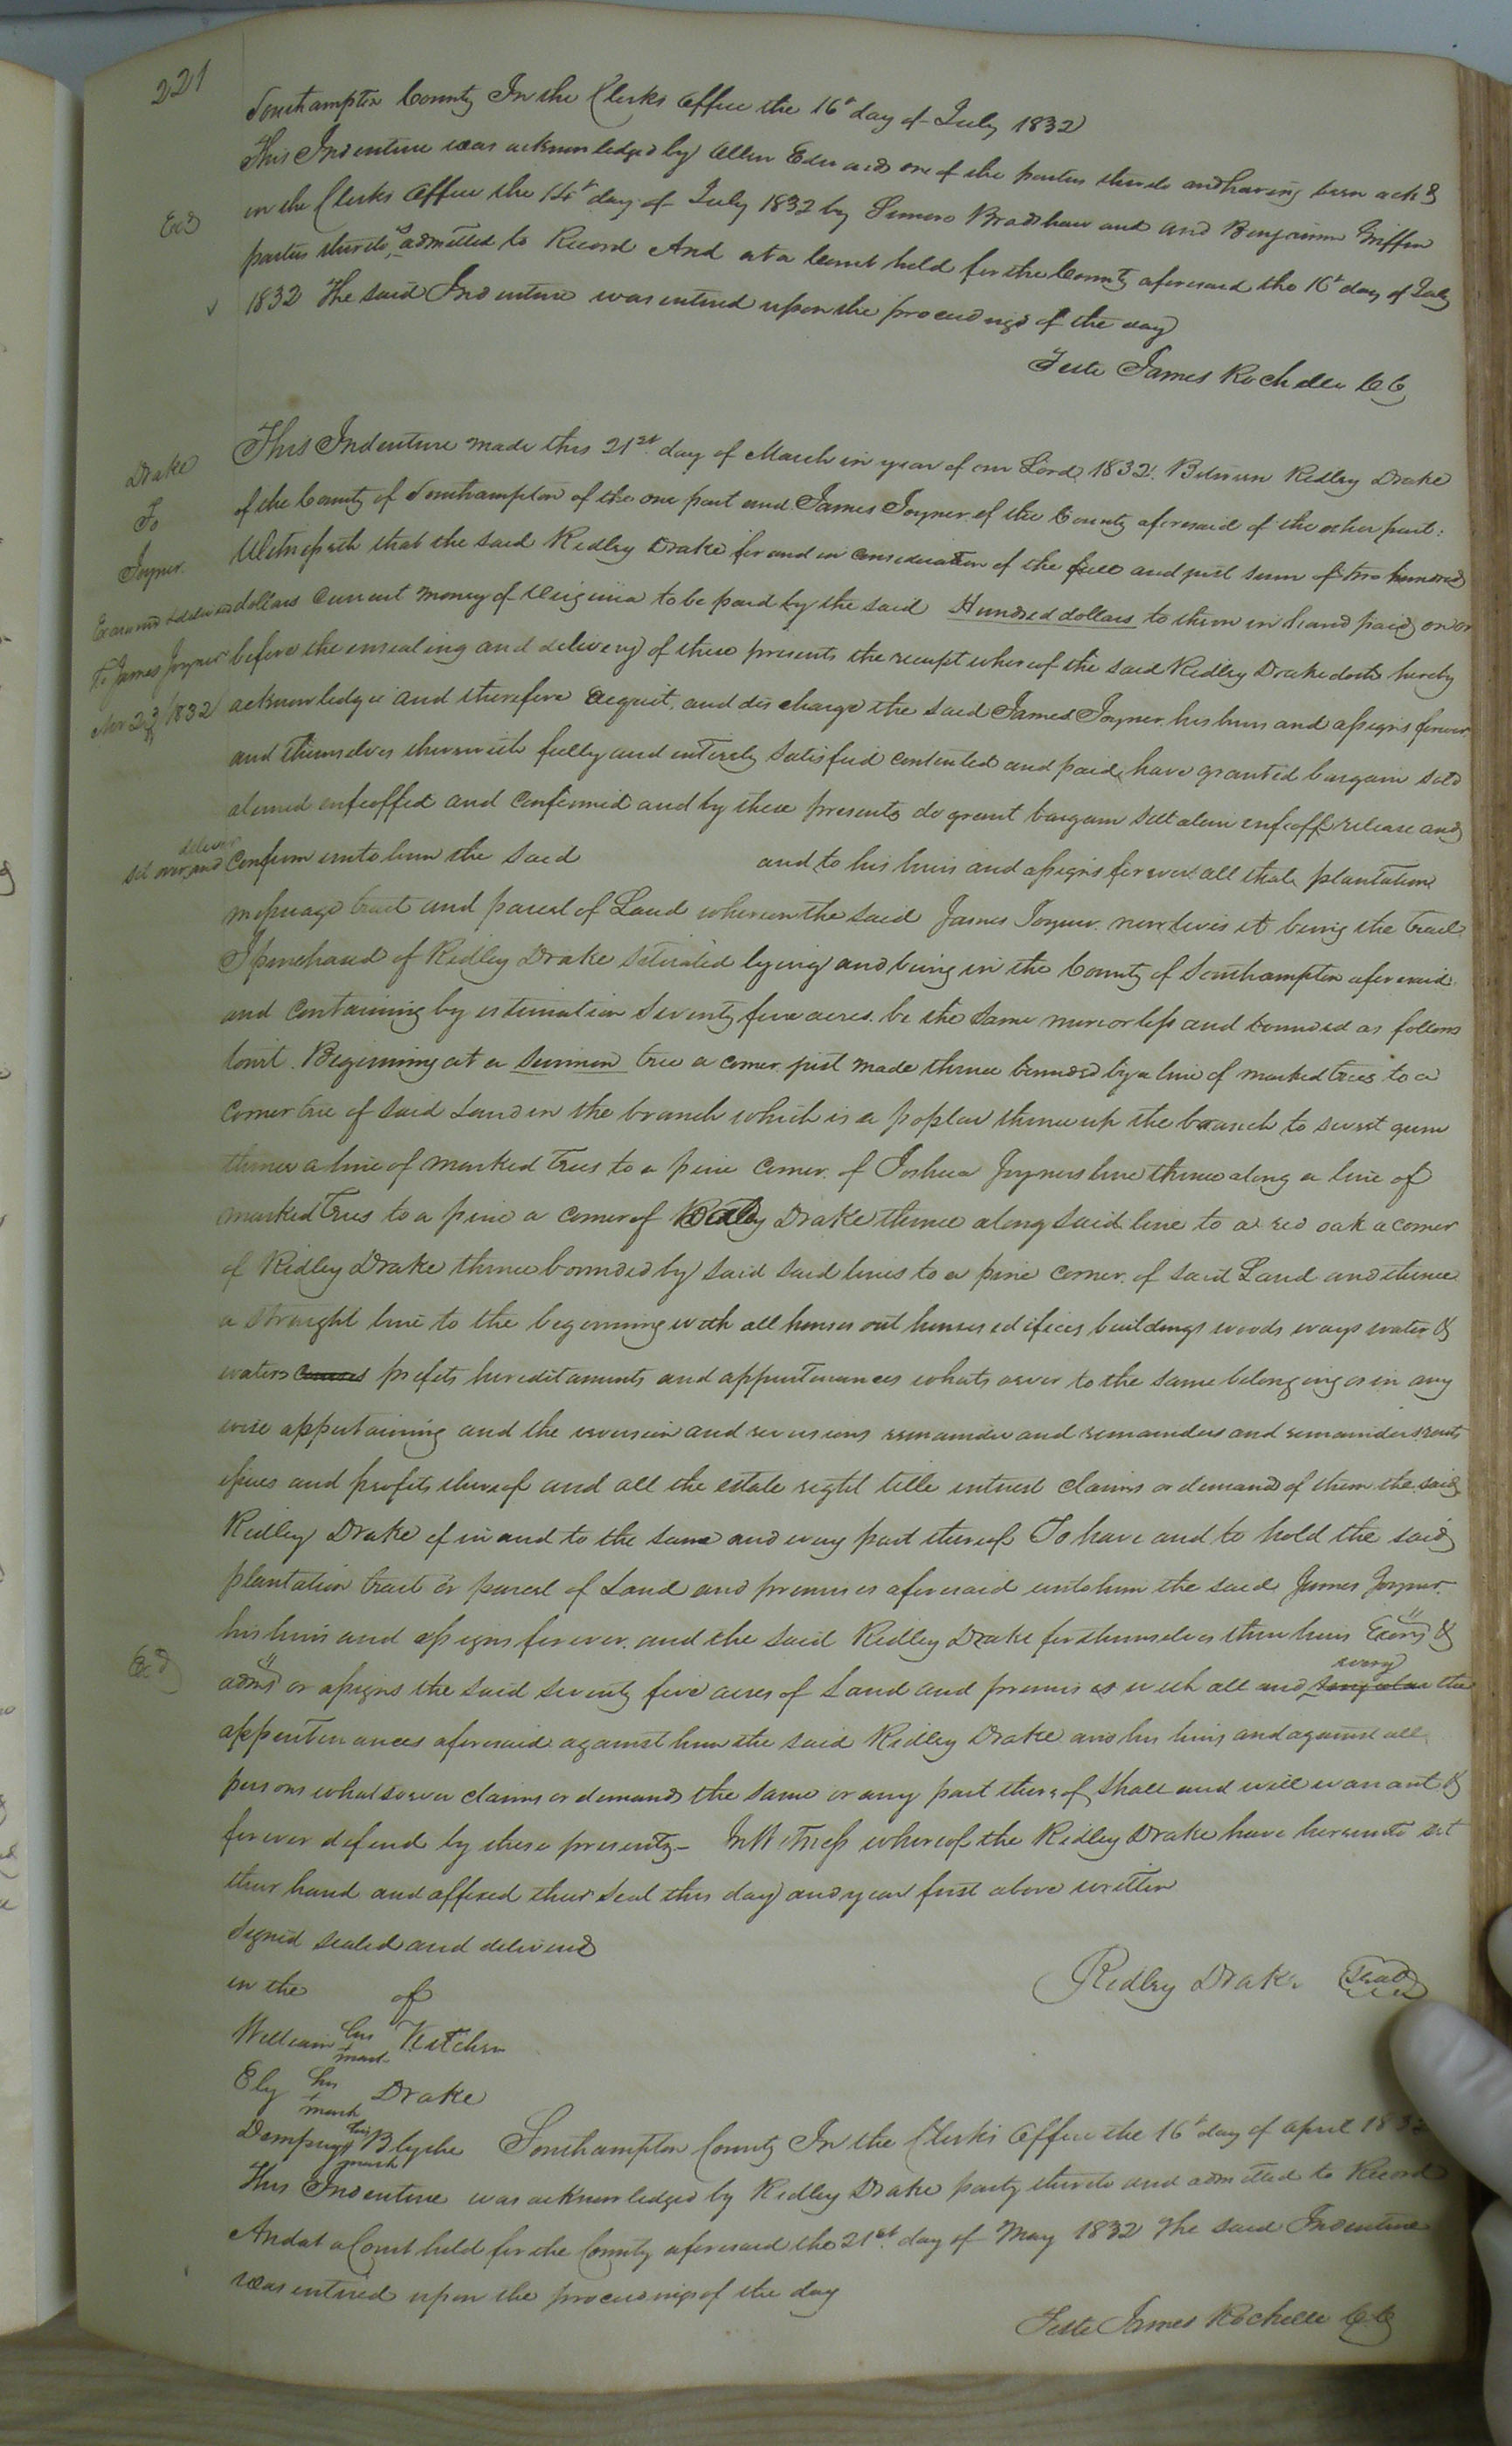 221
Southampton County In the Clerks Office the 16t day of July 1832
This Indenture was acknowledged by Allen Edwards one of the parties thereto and having been ackd
in the Clerks Office the 14t day of July 1832 by Simon Bradshaw and and Benjamin Griffin
Exd
parties thereto is admitted to Record And at a Court held for the County aforesaid the 16t day of July
1832 The said Indenture was entered upon the proceedings of the day
Teste James Rochelle CC
Drake
To
Joyner
Examined & delivered
To James Joyner
Nov 23d 1832
This Indenture made this 21st day of March in year of our Lord 1832. Between Ridley Drake
of the County of Southampton of the one part and James Joyner of the County aforesaid of the other part:
Witnesseth that the said Ridley Drake for and in consideration of the full and just sum of two hundred
dollars Current money of Virginia to be paid by the said Hundred dollars to them in hand paid on or
before the ensealing and delivery of these presents the receipt whereof the said Ridley Drake doth hereby
acknowledge and therefore acquit, and discharge the said James Joyner his heirs and assigns forever
and themselves therewith fully and entirely satisfied contented and paid, have granted bargain sold
aliened enfeoffed and confirmed and by these presents do grant bargain sell alien enfeoff release and
deliver
set over and Confirm unto him the said and to his heirs and assigns forever all that plantation
messuage tract and parcel of Land whereon the said James Joyner now lives it being the tract
I purchased of Ridley Drake situated lying and being in the County of Southampton aforesaid
and Containing by estimation Seventy five acres be the same more or less and bounded as follows
towit. Beginning at a Simmon tree a corner just made thence bounded by a line of marked trees to a
Corner tree of said Land in the branch which is a poplar thence up the branch to sweet gum
thence a line of marked trees to a pine corner of Joshua Joyners line thence along a line of
marked trees to a pine a corner of Drake thence along said line to a red oak a corner
of Ridley Drake thence bounded by said said lines to a pine corner of said Land and thence
a straight line to the beginning with all houses out houses edifices buildings woods ways water &
waters courses profits hereditaments and appurtenances whatsoever to the same belonging or in any
wise appertaining and the reversion and reversions remainder and remainders and remainders rents
issues and profits thereof and all the estate right title interest claims or demand of them the said
Ridley Drake of in and to the same and every part thereof To have and to hold the said
plantation tract or parcel of Land and premises aforesaid unto him the said James Joyner
his heirs and assigns forever. and the said Ridley Drake for themselves their heirs Exors &
Exd
adms or assigns the said seventy five acres of Land and premises with all and every singular the
appurtenances aforesaid against him the said Ridley Drake and his heirs and against all
persons whatsoever claims or demands the same or any part thereof shall and will warrant &
forever defend by these presents - In Witness whereof the Ridley Drake have hereunto set
their hand and affixed their seal this day and year first above written
Signed sealed and delivered
in the of
Ridley Drake Seal
William his + mark Kitchen
Ely his + mark Drake
Dempsey his + mark Blythe Southampton County In the Clerks Office the 16t day of April 1832
This Indenture was acknowledged by Ridley Drake party thereto and admitted to Record
And at a Court held for the County aforesaid the 21st day of May 1832 The said Indenture
was entered upon the proceedings of the day
Teste James Rochelle CC